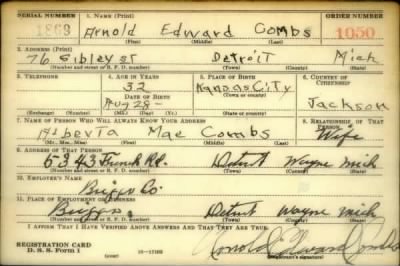 SERIAL NUMBER 1. NAME (Print) ORDER NUMBER
1869 Arnold Edward Combs 1050
(First) (Middle) (Last)
2. ADDRESS (Print)
76 Sibley st Detroit Mich
(Number and street or R. F. D. number) (Town) (County) (State)
3. TELEPHONE 4. AGE IN YEARS 5. PLACE OF BIRTH 6. COUNTRY OF CITIZENSHIP
32 Kansas City
DATE OF BIRTH (Town or county)
Aug 28 - Jackson
(Exchange) (Number) (Mo.) (Day) (Yr.) (State or country)
7. NAME OF PERSON WHO WILL ALWAYS KNOW YOUR ADDRESS 8. RELATIONSHIP OF THAT PERSON
Alberta Mae Combs Wife
(Mr., Mrs., Miss) (First) (Middle) (Last)
9. ADDRESS OF THAT PERSON
5343 French Rd. Detroit Wayne Mich
(Number and street or R. F. D. number) (Town) (County) (State)
10. EMPLOYER'S NAME
Briggs Co.
11. PLACE OF EMPLOYMENT OR BUSINESS
Briggs. Detroit Wayne Mich
(Number and street or R. F. D. number) (Town) (County) (State)
I AFFIRM THAT I HAVE VERIFIED ABOVE ANSWERS AND THAT THEY ARE TRUE.
REGISTRATION CARD
D. S. S. Form 1 (over) 16—17105 Arnold Edward Combs
(Registrant's signature)